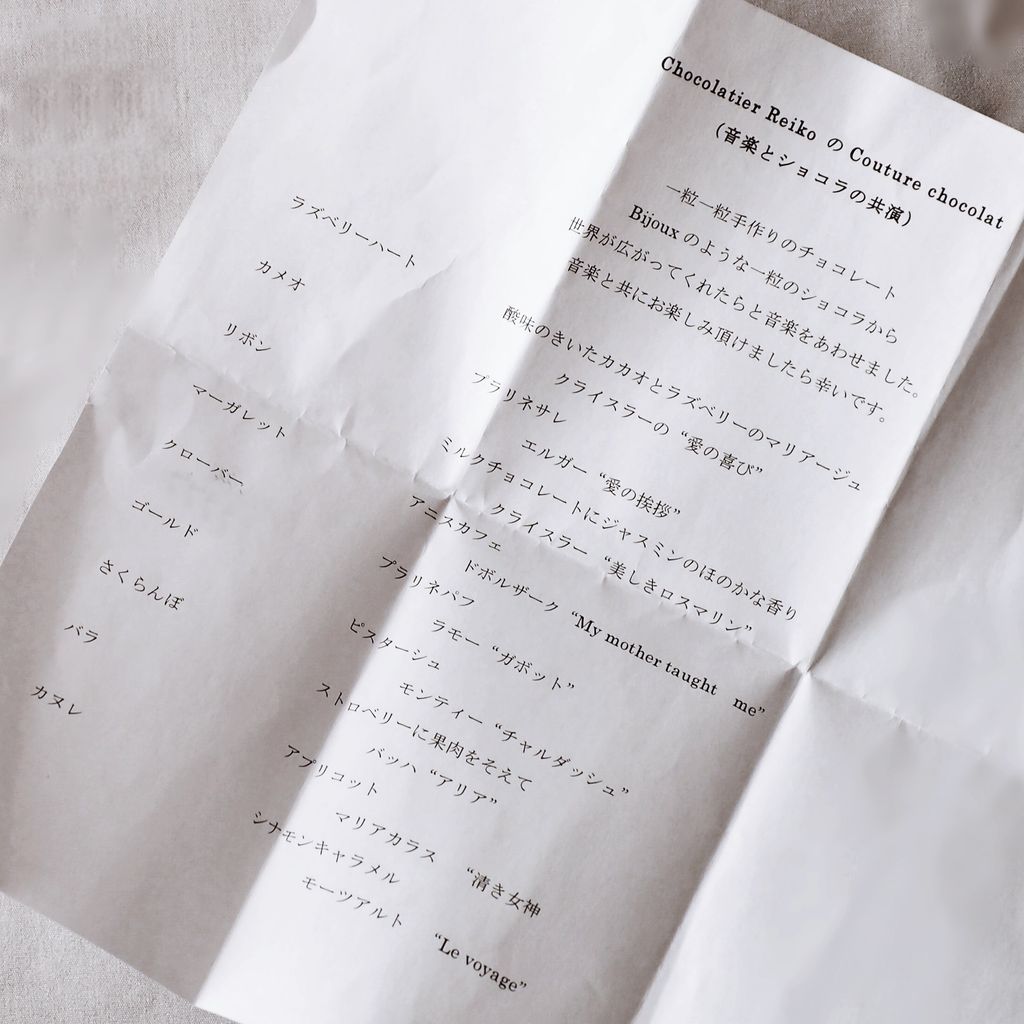 Chocolatier Reiko の Couture chocolat
(音楽とショコラの共演)
一粒一粒手作りのチョコレート
Bijoux のような一粒のショコラから
世界が広がってくれたらと音楽をあわせました。
音楽と共にお楽しみ頂けましたら幸いです。
ラズベリーハート 酸味のきいたカカオとラズベリーのマリアージュ
クライスラーの “愛の喜び”
カメオ プラリネサレ
エルガー “愛の挨拶”
リボン ミルクチョコレートにジャスミンのほのかな香り
クライスラー “美しきロスマリン”
マーガレット アニスカフェ
ドボルザーク “My mother taught me”
クローバー プラリネパフ
ラモー “ガボット”
ゴールド ピスターシュ
モンティー “チャルダッシュ”
さくらんぼ ストロベリーに果肉をそえて
バッハ “アリア”
バラ アプリコット
マリアカラス “清き女神
カヌレ シナモンキャラメル
モーツアルト “Le voyage”